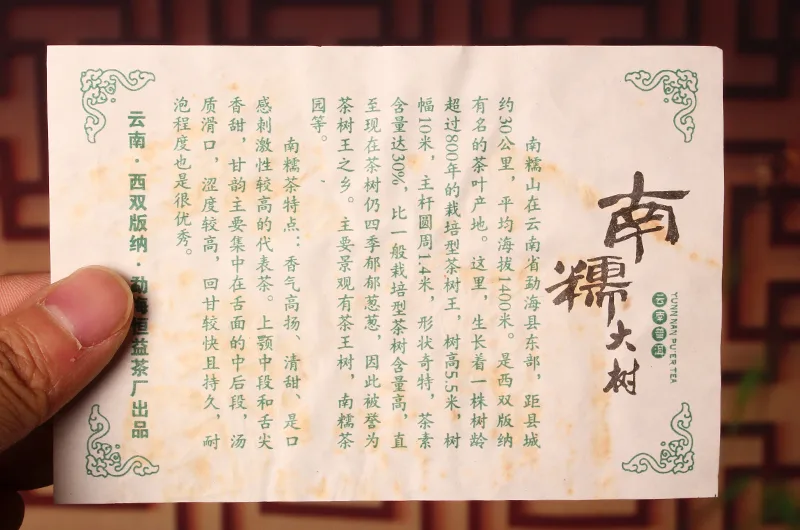 南糯大树
YUNN NAN PU ER TEA
云南普洱
南糯山在云南省勐海县东部，距县城
约30公里，平均海拔1400米。是西双版纳
有名的茶叶产地。这里，生长着一株树龄
超过800年的栽培型茶树王，树高5.5米，树
幅10米，主杆圆周1.4米，形状奇特，茶素
含量达30%，比一般栽培型茶树含量高，直
至现在茶树仍四季郁郁葱葱，因此被誉为
茶树王之乡。主要景观有茶王树，南糯茶
园等。
南糯茶特点：香气高扬、清甜、是口
感刺激性较高的代表茶。上颚中段和舌尖
香甜，甘韵主要集中在舌面的中后段，汤
质滑口，涩度较高，回甘较快且持久，耐
泡程度也是很优秀。
云南·西双版纳·勐海恒益茶厂出品